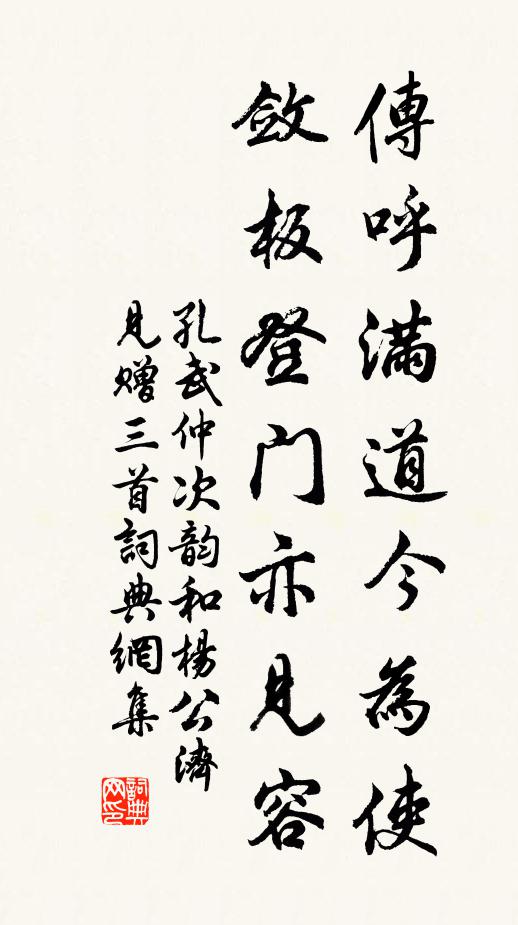 傳呼滿道今為使
斂板登門亦見容
孔武仲次韵和楊公濟
見贈三首詞典網集
詞典网印